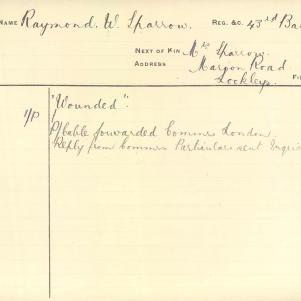 NAME Raymond. W. Sparrow. REG. &C. 43rd Ba
NEXT OF KIN Mrs Sparrow.
ADDRESS Marion Road
Lockleys. Fi
"Wounded".
P/Cable forwarded Commrs London.
Reply from Commrs Particulars sent